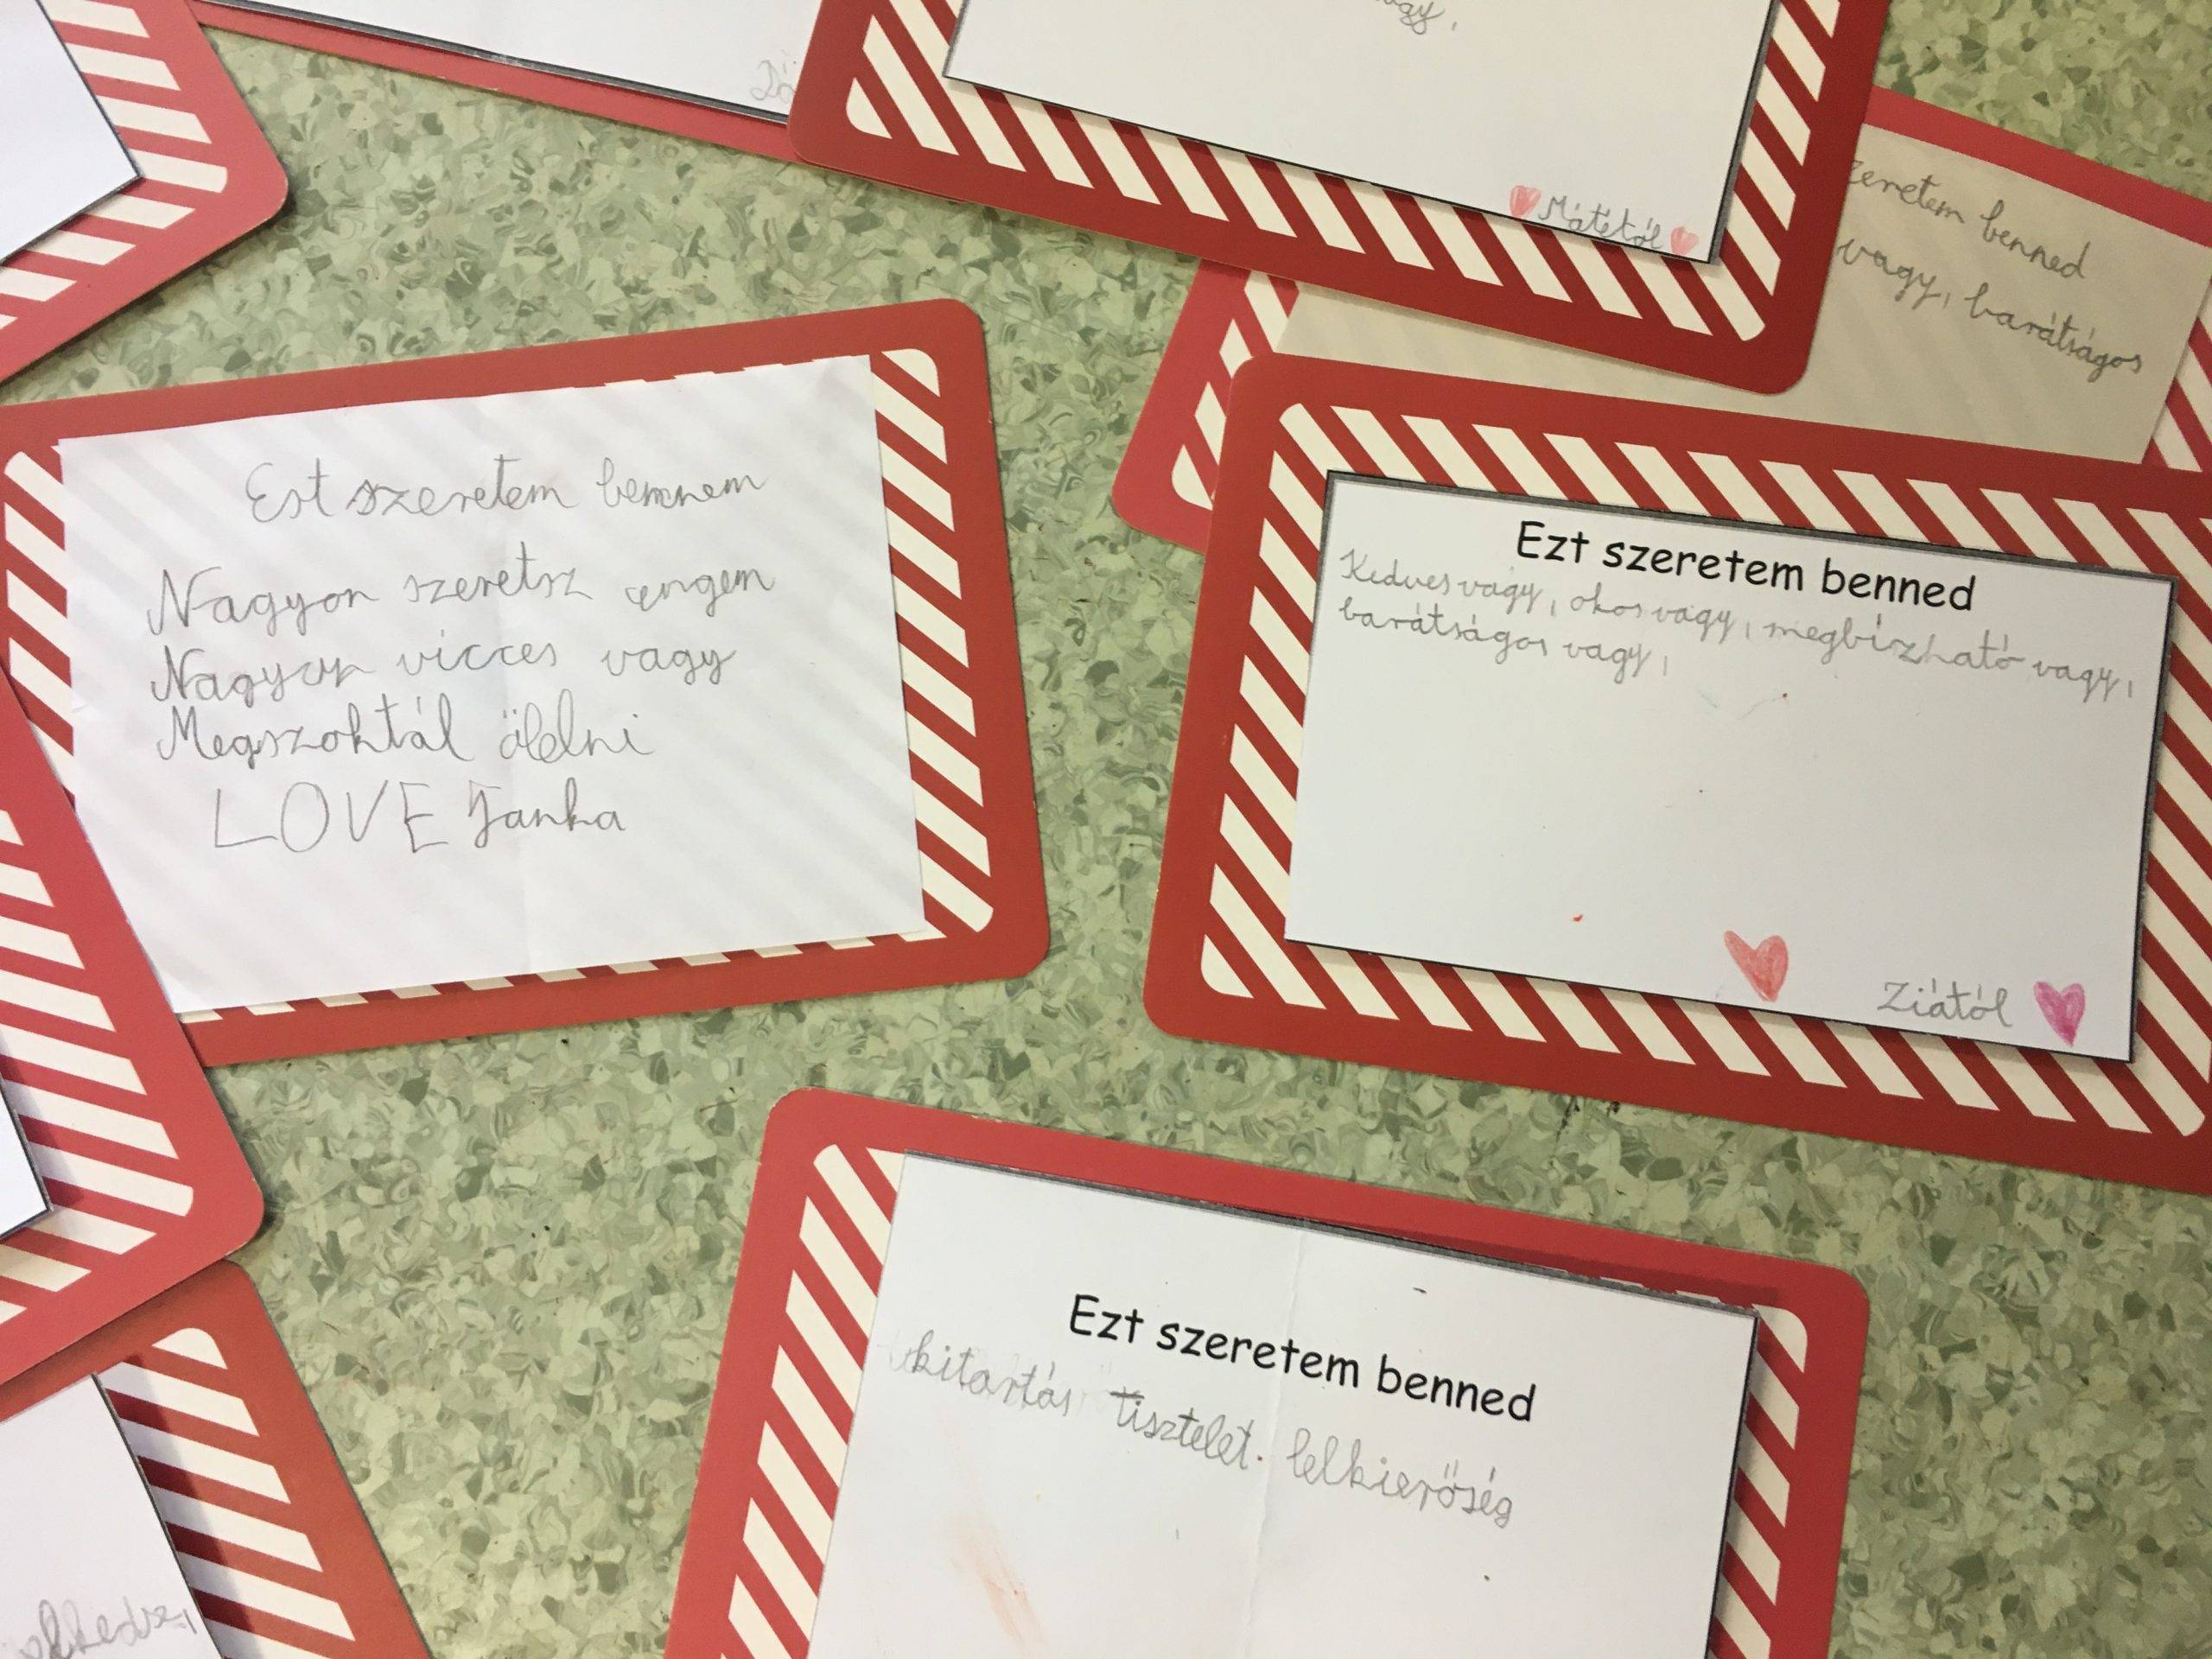 vagy,
Mátétól
zeretem benned
vagy, barátságos
Est szeretem bemnem
Nagyon szeretsz engem
Nagyon vicces vagy
Megszoktál ölelni
LOVE Janka
Ezt szeretem benned
Kedves vagy, okos vagy, megbízható vagy,
barátságos vagy,
Ziától
Ezt szeretem benned
kitartás Tisztelet. lelkierőség